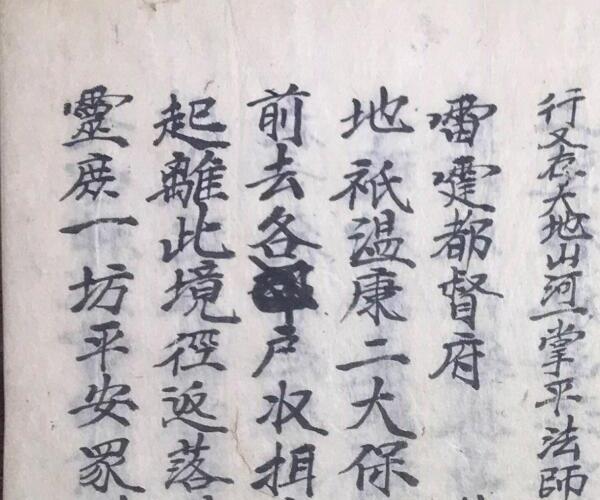 行文忝天地山河一掌平法師
雷霆都督府
地祇溫康二大保
前去各戶收捐
起離此境徑返落
靈庶一坊平安眾